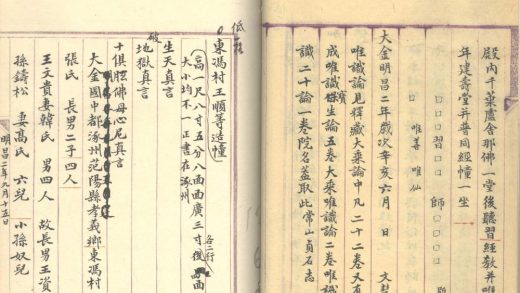 殿內千葉盧舍那佛一堂後聽習經教并唯
年建壽堂并普同經幢一坐
□□□習□ 師□□□□
□ 唯善 唯仙
大金明昌二年歲次辛亥六月日 文
唯識論見釋藏大乘論中凡二十二卷又有
成唯識寶生論五卷大乘唯識論二卷唯識
識二十論一卷院名蓋取此常山貞石志
低一格
東馮村王順等造幢
高一尺八寸五分八面面廣三寸各二行後四面
大小均不一正書在涿州
生天真言
破地獄真言
十俱胝佛母心尼真言
大金國中都涿州范陽縣孝義鄉東馮村
張氏 長男二子四人
王文貴妻韓氏 男四人 故長男王資
孫鑄松 妻高氏 六兒 小孫奴兒
明昌二年九月十五日